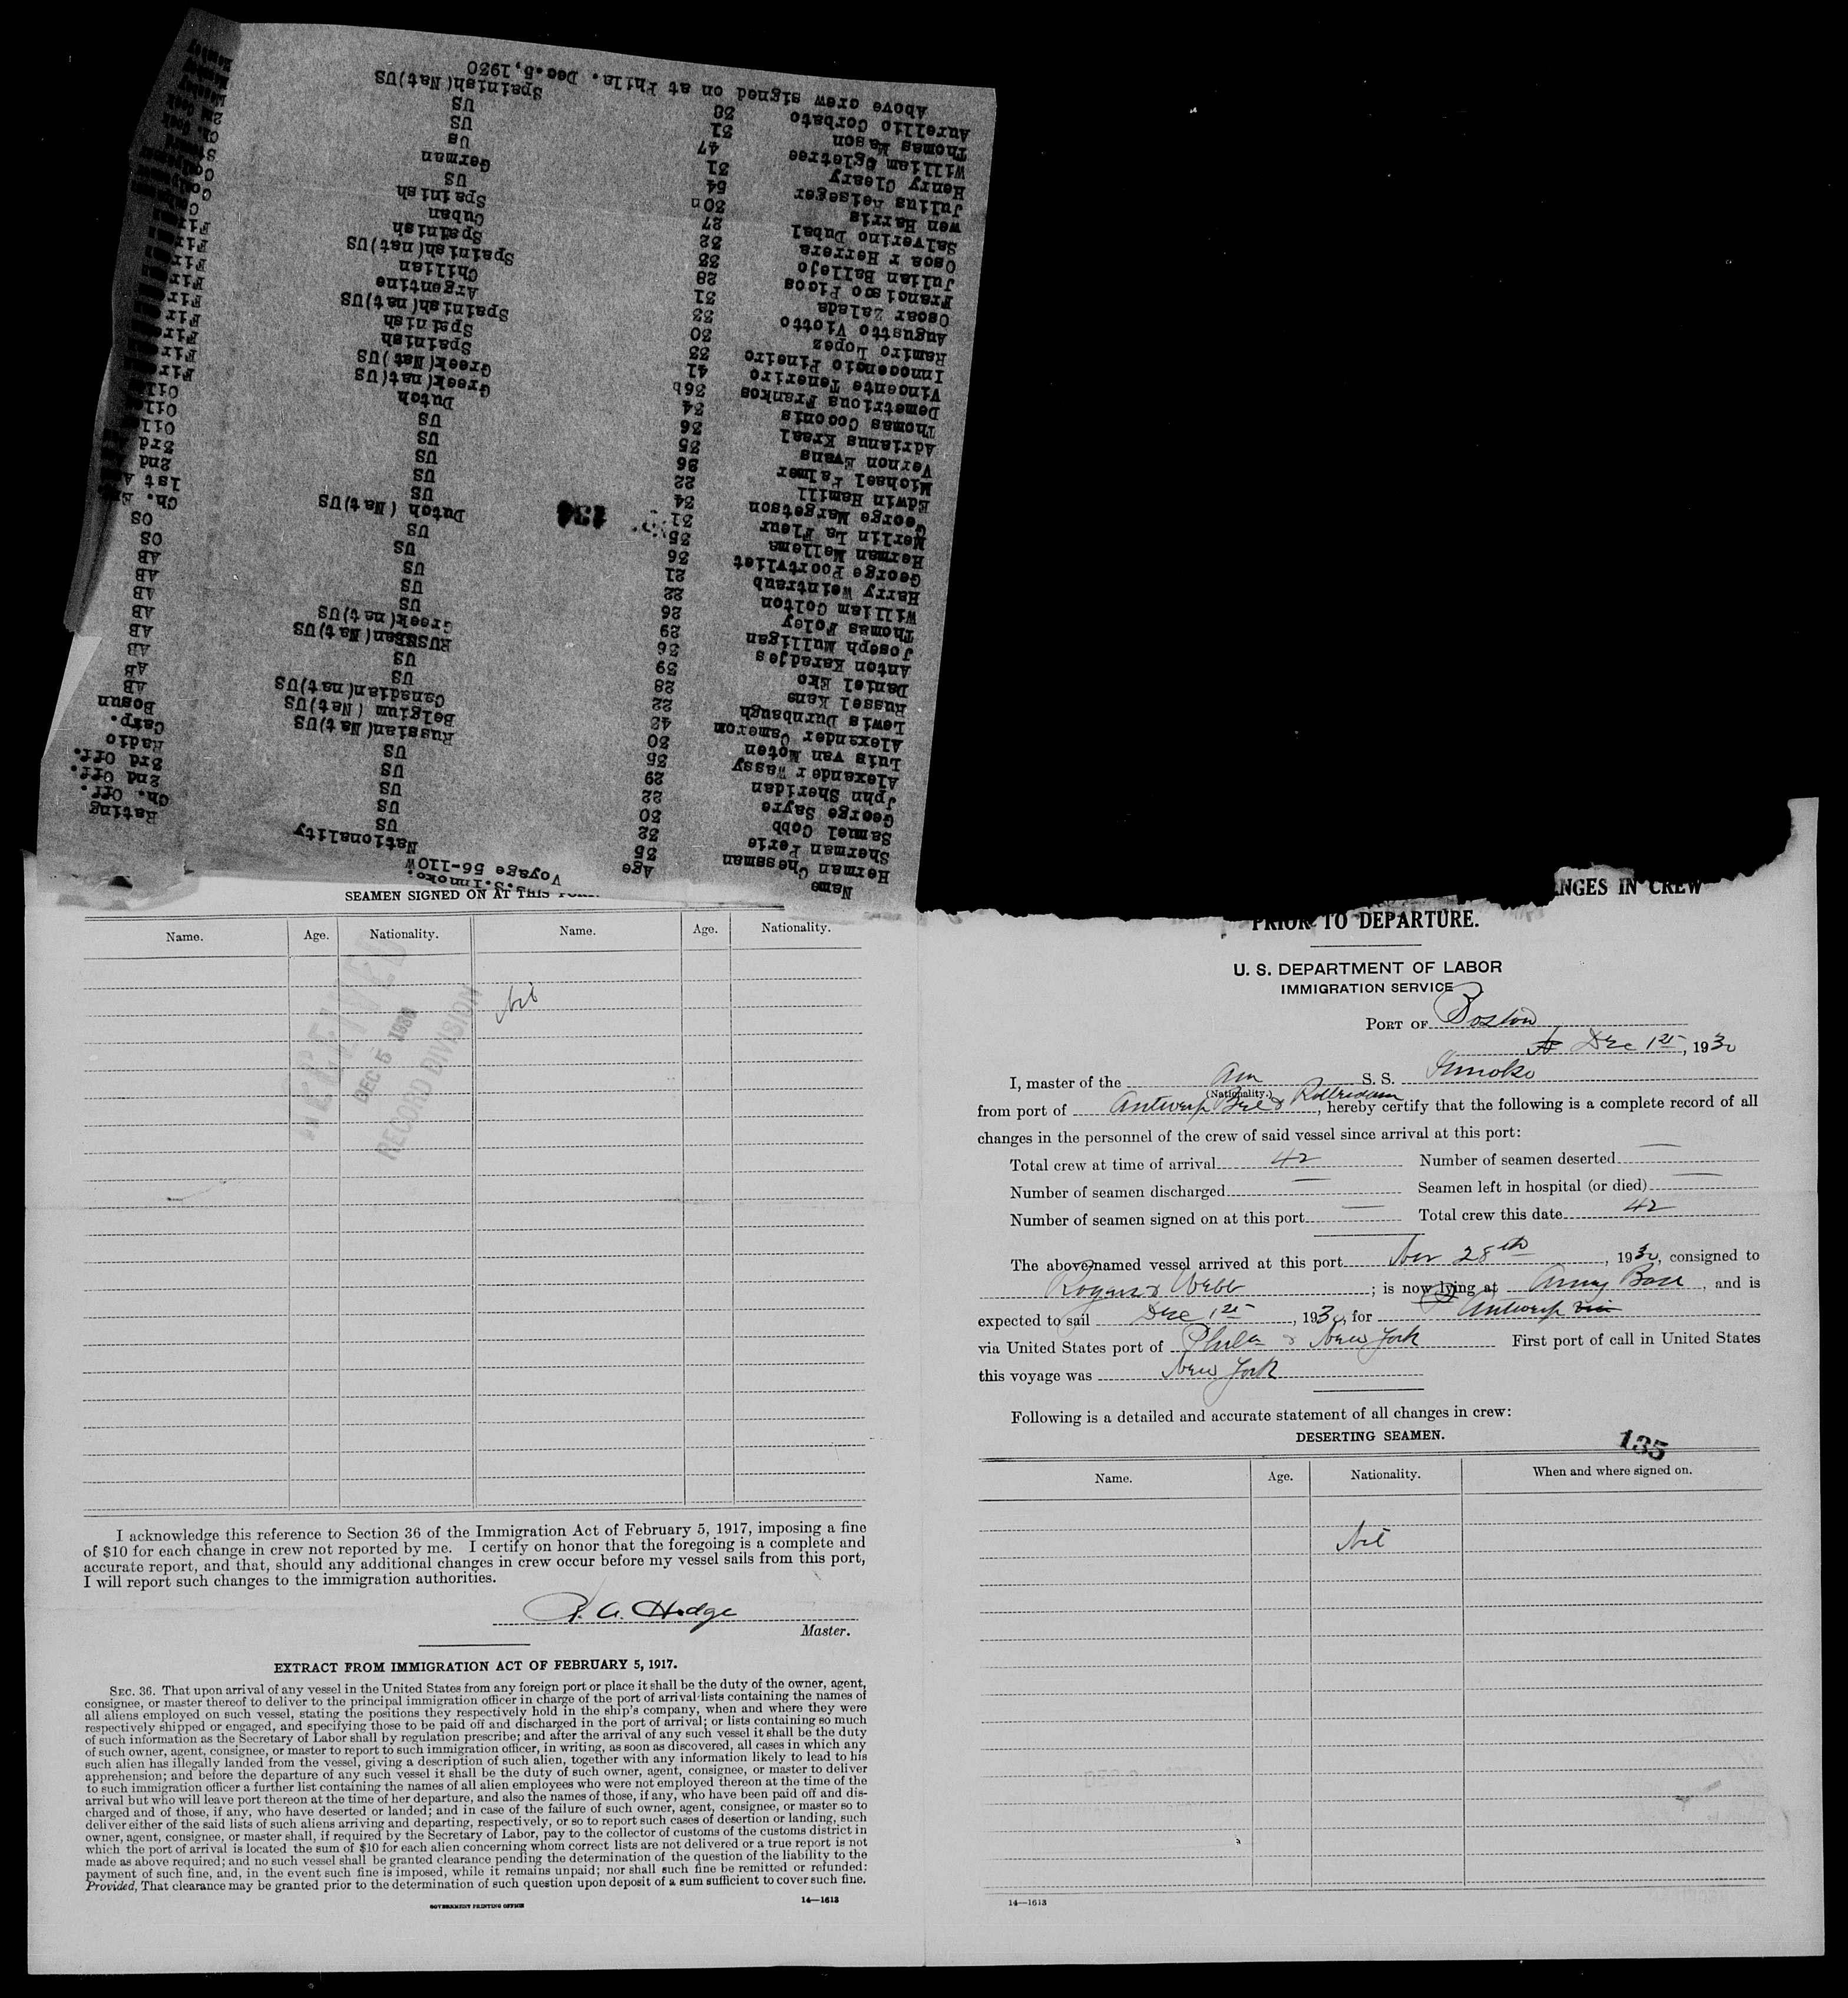 S.S. Innoko.
Voyage 56-110W
Name Age Nationality Rating
Herman Chessman 35 US Ch. Off.
Sherman Perie 32 US 2nd Off.
Samuel Cobb 30 US 3rd Off.
George Sayre 22 US Radio
Jphn Sheridan 29 US Carp.
Alexander Wassy 35 Russian(Nat)US Bosun
Luis van Moten 30 Belgium (Nat)US AB
Alexander Cameron 43 Canadian(nat)US AB
Lewis Durnbaugh 22 US AB
Russel Kans 28 US AB
Daniel Eko 39 RUSSIan(Nat)US AB
Anton Karadjes 36 Greek(nat)US AB
Joseph Mulligan 29 US AB
Thomas Foley 26 US AB
William Colton 22 US OS
Harry Weintraub 21 US OS
George Poortvliet 36 US Ch. E
Herman Mellema 35 Dutch (Nat)US 1st A
Merlin La Fleur 31 US 2nd
George Margetson 34 US 3rd
Edwin Hamill 22 US Oil
Michael Palmer 26 US Oil
Vernon Evans 35 US Oil
Adrianus Kraal 36 Dutch Fir
Thomas Coconis 34 Greek(nat)US Fir
Demetrious Frankos 36b Greek(Nat)US Fir
Vincente Teneriro 41 Spainish Fir
Innocencio Pineiro 33 Spainish Fir
Ramiro Lopez 30 Spainish(nat)US Fir
Augustto Viotto 33 Argentine Fir
Oscar Zalada 31 Chilian Fir
Francisco Picos 28 Spainish(nat)US Fir
Julian Ballejo 33 Spainish
Osca r Herrera 32 Cuban
Salverino Dubal 27 Spainish
wen Harris 30n US
Julius Reiseger 54 German
Henry Cleary 31 Us
William Ogletree 47 US
Thomas Mason 31 US
Aurelio Corbato 38 Spainish(Nat)US
Above crew signed on at Phila. Dec.5,1930
134
SEAMEN SIGNED ON AT THIS PORT.
Name. Age. Nationality. Name. Age. Nationality.
Nil
RECEIVED
DEC 5 1930
RECORD DIVISION
I acknowledge this reference to Section 36 of the Immigration Act of February 5, 1917, imposing a fine
of $10 for each change in crew not reported by me. I certify on honor that the foregoing is a complete and
accurate report, and that, should any additional changes in crew occur before my vessel sails from this port,
I will report such changes to the immigration authorities.
P. A. Hodge
Master.
EXTRACT FROM IMMIGRATION ACT OF FEBRUARY 5, 1917.
SEC. 36. That upon arrival of any vessel in the United States from any foreign port or place it shall be the duty of the owner, agent,
consignee, or master thereof to deliver to the principal immigration officer in charge of the port of arrival lists containing the names of
all aliens employed on such vessel, stating the positions they respectively hold in the ship's company, when and where they were
respectively shipped or engaged, and specifying those to be paid off and discharged in the port of arrival; or lists containing so much
of such information as the Secretary of Labor shall by regulation prescribe; and after the arrival of any such vessel it shall be the duty
of such owner, agent, consignee, or master to report to such immigration officer, in writing, as soon as discovered, all cases in which any
such alien has illegally landed from the vessel, giving a description of such alien, together with any information likely to lead to his
apprehension; and before the departure of any such vessel it shall be the duty of such owner, agent, consignee, or master to deliver
to such immigration officer a further list containing the names of all alien employees who were not employed thereon at the time of the
arrival but who will leave port thereon at the time of her departure, and also the names of those, if any, who have been paid off and dis-
charged and of those, if any, who have deserted or landed; and in case of the failure of such owner, agent, consignee, or master so to
deliver either of the said lists of such aliens arriving and departing, respectively, or so to report such cases of desertion or landing, such
owner, agent, consignee, or master shall, if required by the Secretary of Labor, pay to the collector of customs of the customs district in
which the port of arrival is located the sum of $10 for each alien concerning whom correct lists are not delivered or a true report is not
made as above required; and no such vessel shall be granted clearance pending the determination of the question of the liability to the
payment of such fine, and, in the event such fine is imposed, while it remains unpaid; nor shall such fine be remitted or refunded:
Provided, That clearance may be granted prior to the determination of such question upon deposit of a sum sufficient to cover such fine.
GOVERNMENT PRINTING OFFICE
14—1613
NGES IN CREW
PRIOR TO DEPARTURE.
U. S. DEPARTMENT OF LABOR
IMMIGRATION SERVICE
PORT OF Boston
Dec 1st, 1930
I, master of the Am S. S. Innoko
(Nationality.)
from port of Antwerp Bel & Rotterdam, hereby certify that the following is a complete record of all
changes in the personnel of the crew of said vessel since arrival at this port:
Total crew at time of arrival 42 Number of seamen deserted —
Number of seamen discharged — Seamen left in hospital (or died) —
Number of seamen signed on at this port — Total crew this date 42
The above-named vessel arrived at this port Nov 28th, 1930, consigned to
Rogers & Webb; is now lying at Army Base, and is
expected to sail Dec 1st, 1930, for Antwerp via
via United States port of Phila & New York First port of call in United States
this voyage was New York
Following is a detailed and accurate statement of all changes in crew:
DESERTING SEAMEN.
135
Name. Age. Nationality. When and where signed on.
Nil
14—1613